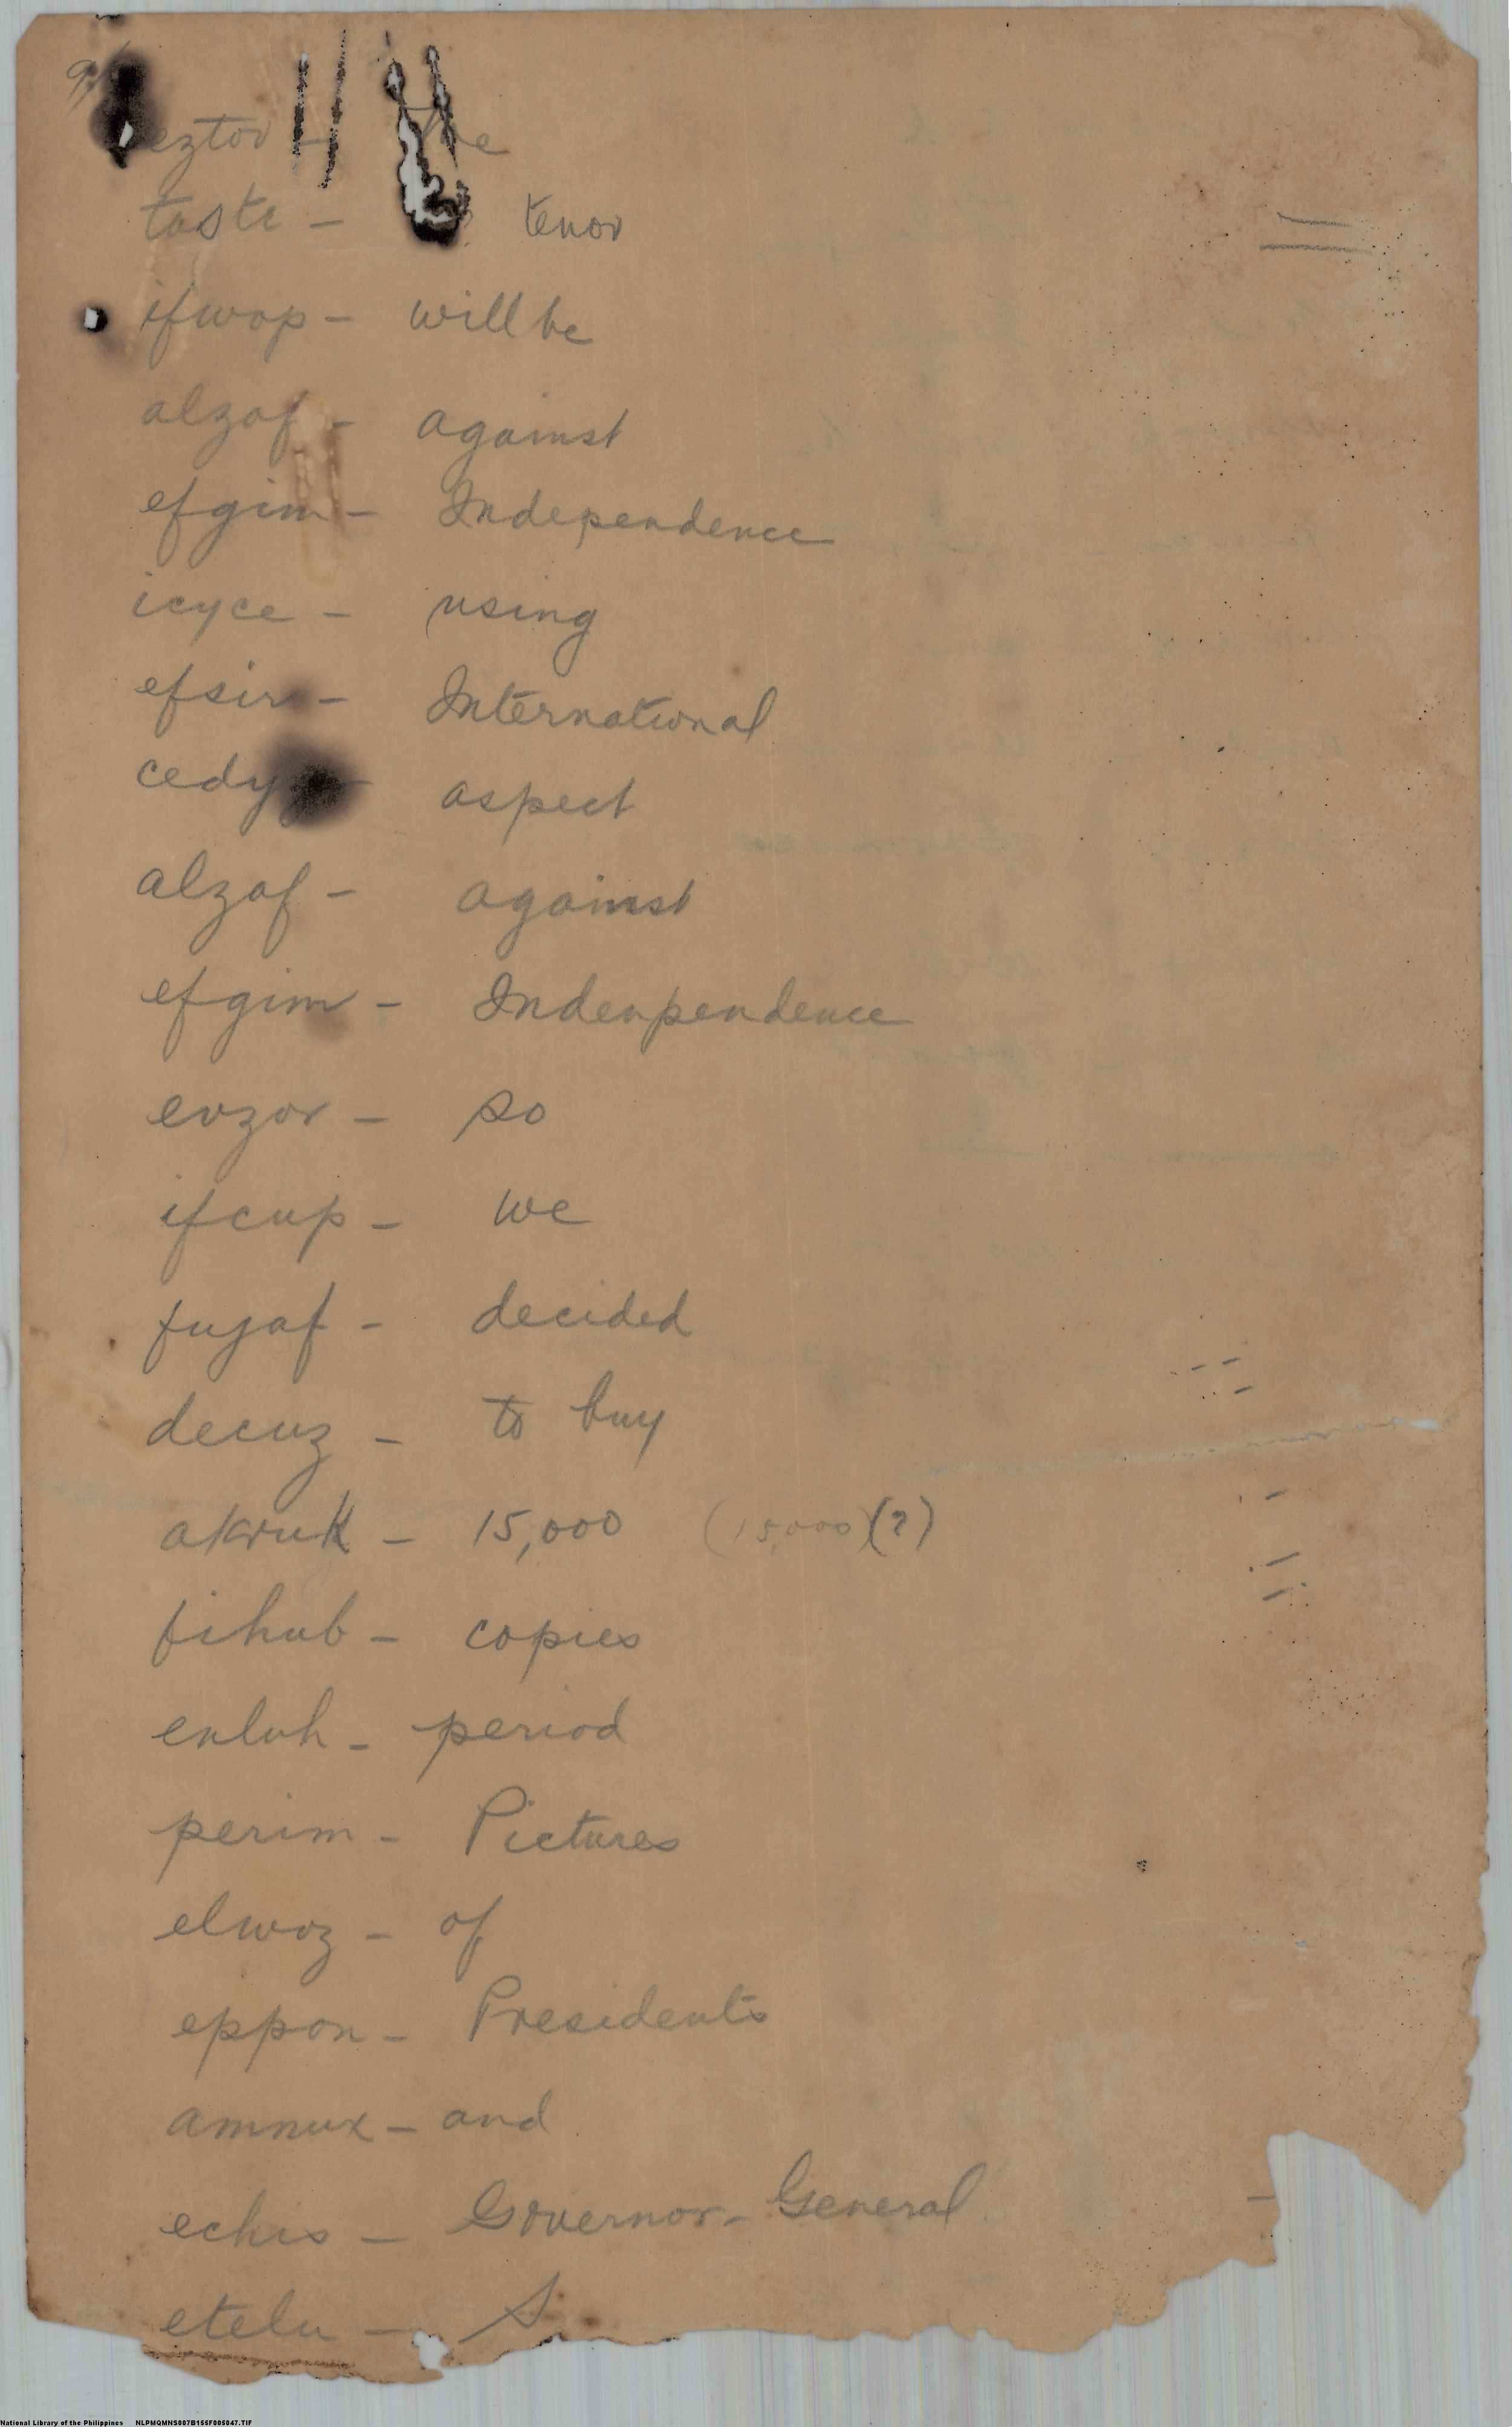 eztov - the
taste - tenor
ifwop - will be
alzaf - against
efgim - Independence
icyce - using
efsir - International
cedy - aspect
alzaf - against
efgim - Indenpendence
evzor - so
ifcup - we
fujaf - decided
decuz - to buy
akruk - 15,000 (15,000) (?)
fihub - copies
enluh - period
perim - Pictures
elwoz - of
eppon - Presidents
amnux - and
echis - Governor-General
etelu - S
National Library of the Philippines NLPMQMNS007B155F005047.TIF